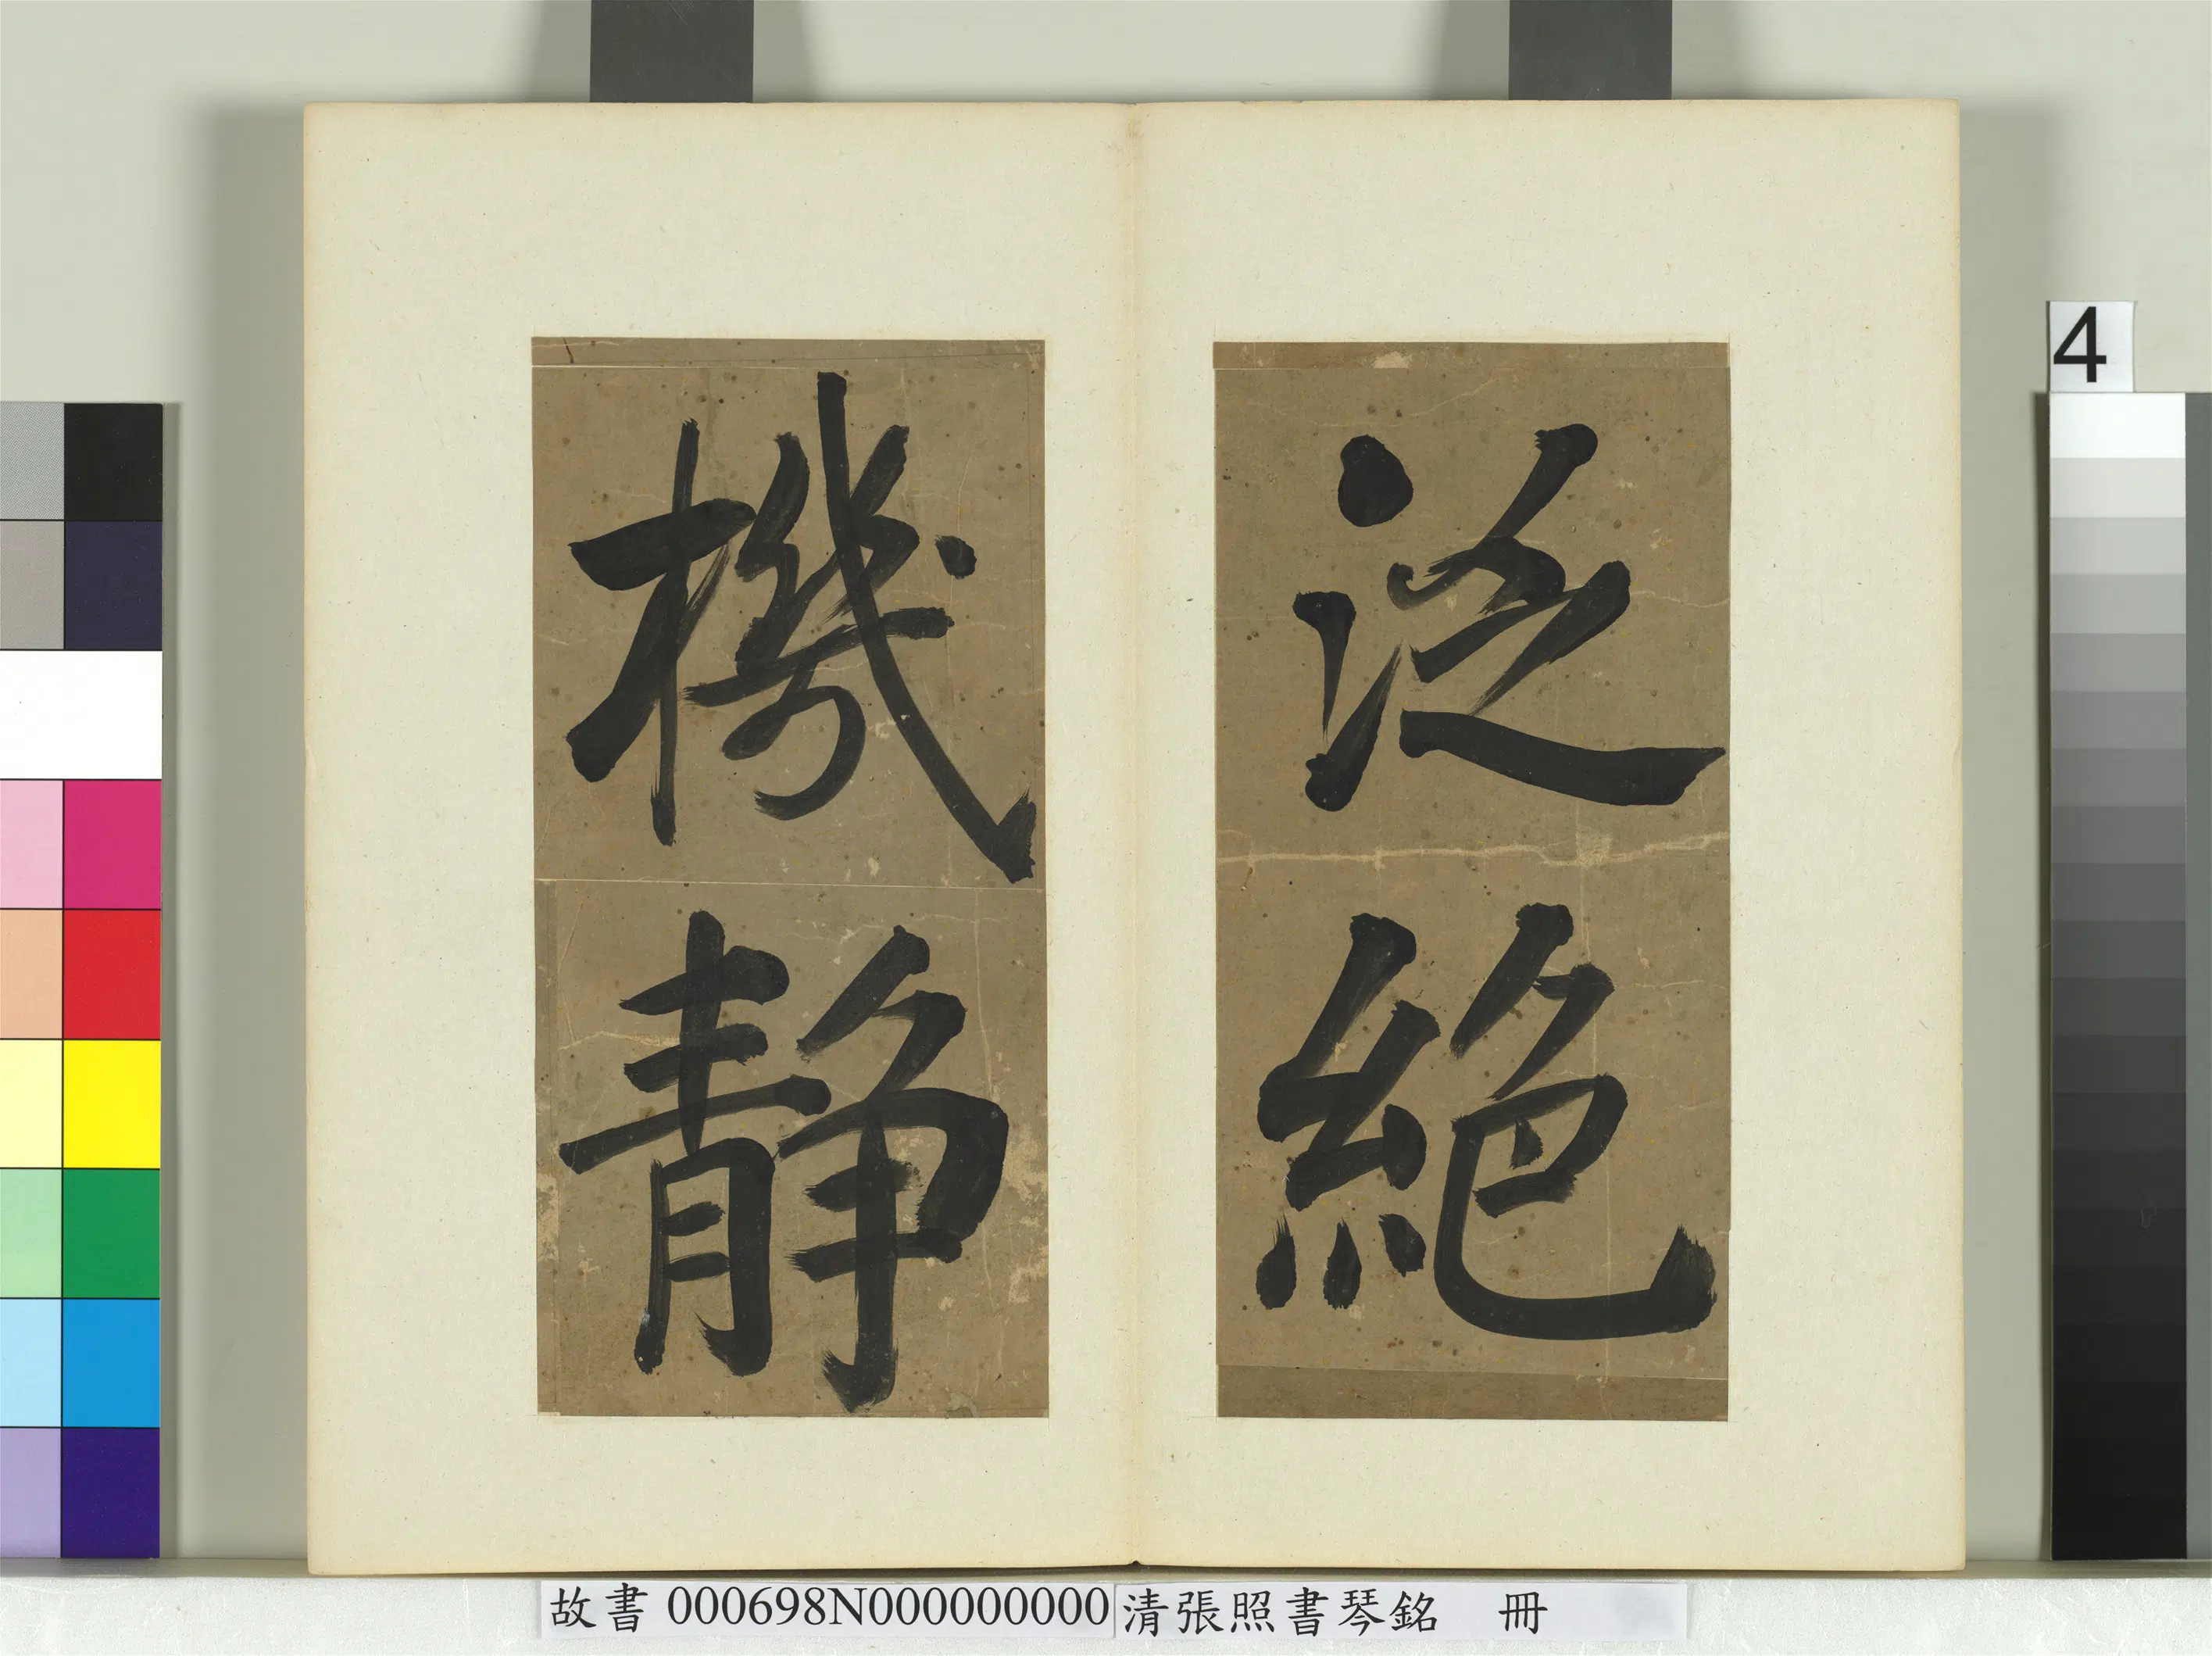 泛絶
機靜
4
故書 000698N000000000 清張照書琴銘 冊